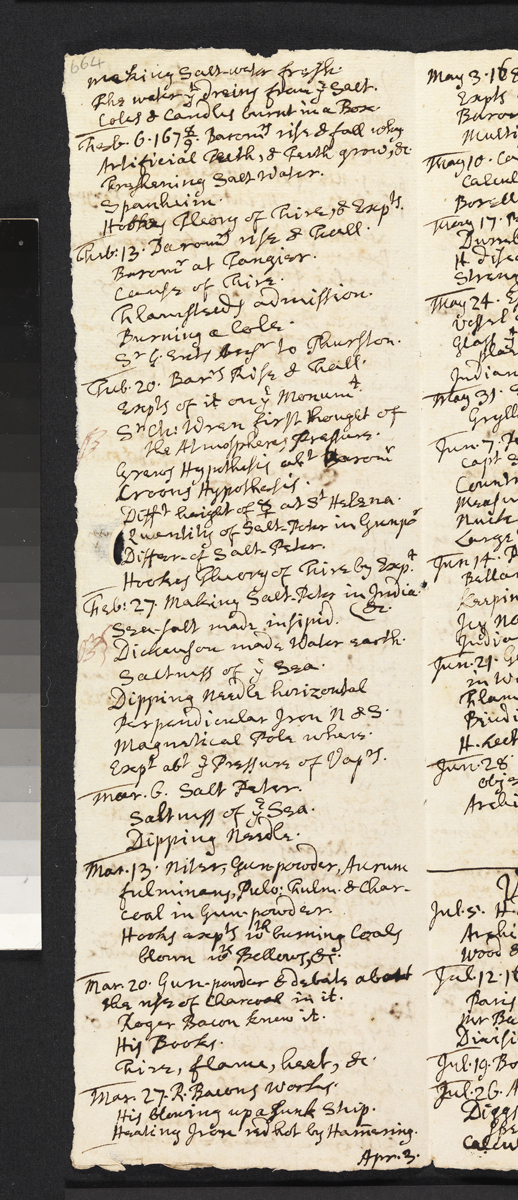 664
making Salt-water fresh.
The water yt Dreins from ye Salt.
Coles & Candles burnt in a Box
Feb. 6. 167 8/9. Baromr rise & fall why
Artificial Teeth, & Teeth grow, &c
Freshening Salt Water.
Spanheim.
Hookes Theory of Fire, & Expts.
Feb. 13. Baromr rise & Fall.
Baromr at Tangier.
Cause of Fire.
Flamsteeds admission.
Burning a Cole.
Sr G. Ents Answr to Thurston.
Feb. 20. Barrs Rise & Fall.
Expts of it on ye Monumt.
Sr Ch: Wren first thought of
the Atmospheres Pressure.
Grews Hypothesis abt Baromr
Croons Hypothesis.
Difft height of ☿ at St Helena.
Quantity of Salt-Peter in Gunpor
Differ- of Salt-Peter.
Hookes Theory of Fire by Expt
Feb: 27. Making Salt-Peter in India.
&c.
Sea-salt made insipid.
Dickenson made Water earth.
Saltness of ye Sea.
Dipping Needle horizontal
Perpendicular Iron N & S.
Magnetical Pole where.
Expt abt ye Pressure of Vaprs.
Mar. 6. Salt Peter.
Saltness of ye Sea.
Dipping Needle.
Mar. 13. Niter, Gun-powder, Aurum
fulminans, Pulv: Fulm. & Char-
coal in Gun-powder.
Hooks expts wth burning Coals
blown wth Bellows, &c.
Mar. 20. Gun-powder & debate about
the use of Charcoal in it.
Roger Bacon knew it.
His Books.
Fire, flame, heat, &c.
Mar. 27. R. Bacons Works.
His blowing up a Sunk Ship.
Heating Iron red hot by Hammering.
Apr. 3.
May 3. 16
Expts
Baro
Multi
May 10. Co
Calcul
Borell
May 17.
H. dise
Streng
May 24.
Vessel
Glass
Indian
May 31.
Gryll
Jun. 7.
Capt
Countr
Measu
Large
Jun 14.
Bellar
Keepin
Indian
Jun. 21.
in W
Flam
H. Lect
Jun. 28.
Obje
Archi
Jul. 5. H.
Archi
Wood
Jul. 12. 16
Paris
Mr Ba
Divisi
Jul. 19. Bo
Jul. 26. A
Diggs
Calcu